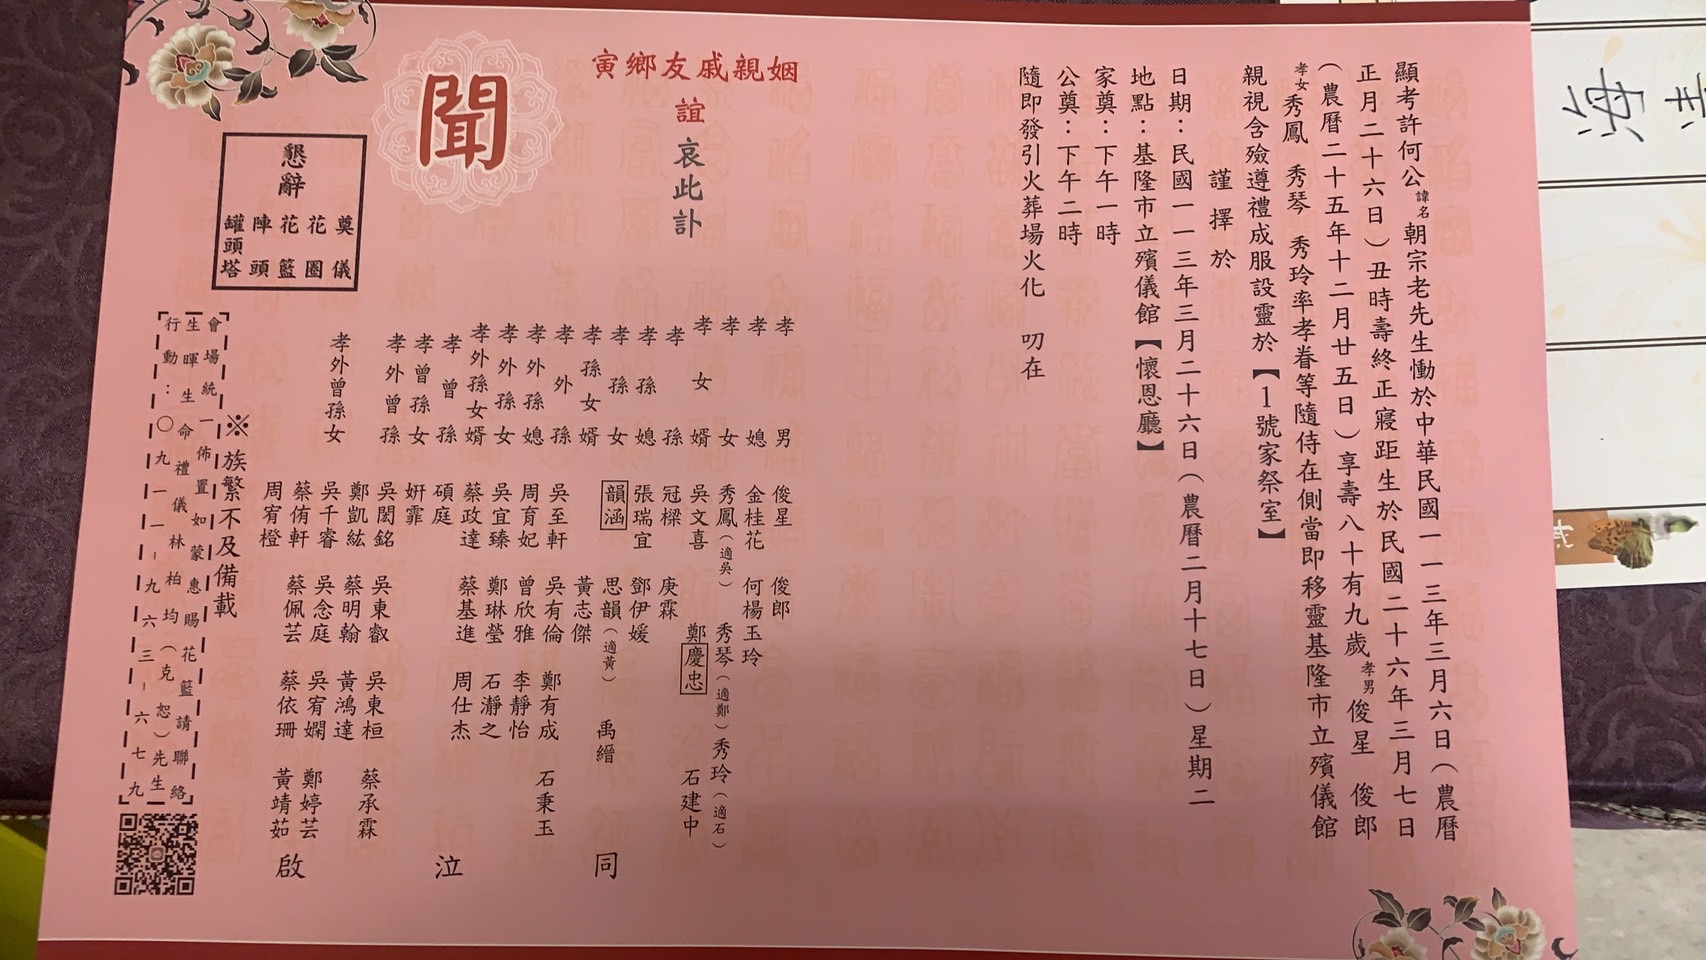 顯考許何公諱名朝宗老先生慟於中華民國一一三年三月六日(農曆
正月二十六日)丑時壽終正寢距生於民國二十六年三月七日
(農曆二十五年十二月廿五日)享壽八十有九歲孝男俊星 俊郎
孝女秀鳳 秀琴 秀玲率孝眷等隨侍在側當即移靈基隆市立殯儀館
親視含殮遵禮成服設靈於【1號家祭室】
謹擇於
日期:民國一一三年三月二十六日(農曆二月十七日)星期二
地點:基隆市立殯儀館【懷恩廳】
家奠:下午一時
公奠:下午二時
隨即發引火葬場火化 叨在
姻親戚友鄉寅
誼 哀此訃
聞
懇辭
奠儀
花圈
花籃
陣頭
罐頭塔
孝男 俊星 俊郎
孝媳 金桂花 何楊玉玲
孝女 秀鳳(適吳) 秀琴(適鄭) 秀玲(適石)
孝女婿 吳文喜 鄭慶忠 石建中
孝孫 冠樑 庚霖
孝孫媳 張瑞宜 鄧伊媛
孝孫女 韻涵 思韻(適黃) 禹縉
孝孫女婿 黃志傑
孝外孫 吳至軒 吳有倫 鄭有成 石秉玉
孝外孫媳 周育妃 曾欣雅 李靜怡
孝外孫女 吳宜臻 鄭琳瑩 石瀞之
孝外孫女婿 蔡政達 蔡基進 周仕杰
孝曾孫 碩庭
孝曾孫女 妍霏
孝外曾孫 吳閎銘 吳東叡 吳東桓 蔡承霖
鄭凱紘 蔡明翰 黃鴻達
孝外曾孫女 吳千睿 吳念庭 吳宥嫻 鄭婷芸
蔡侑軒 蔡佩芸 蔡依珊 黃靖茹
周宥橙
同 泣 啟
※族繁不及備載
會場統一佈置如蒙惠賜花籃請聯絡
生暉生命禮儀林柏均(克恕)先生
行動:〇九一一-九六三-六七九